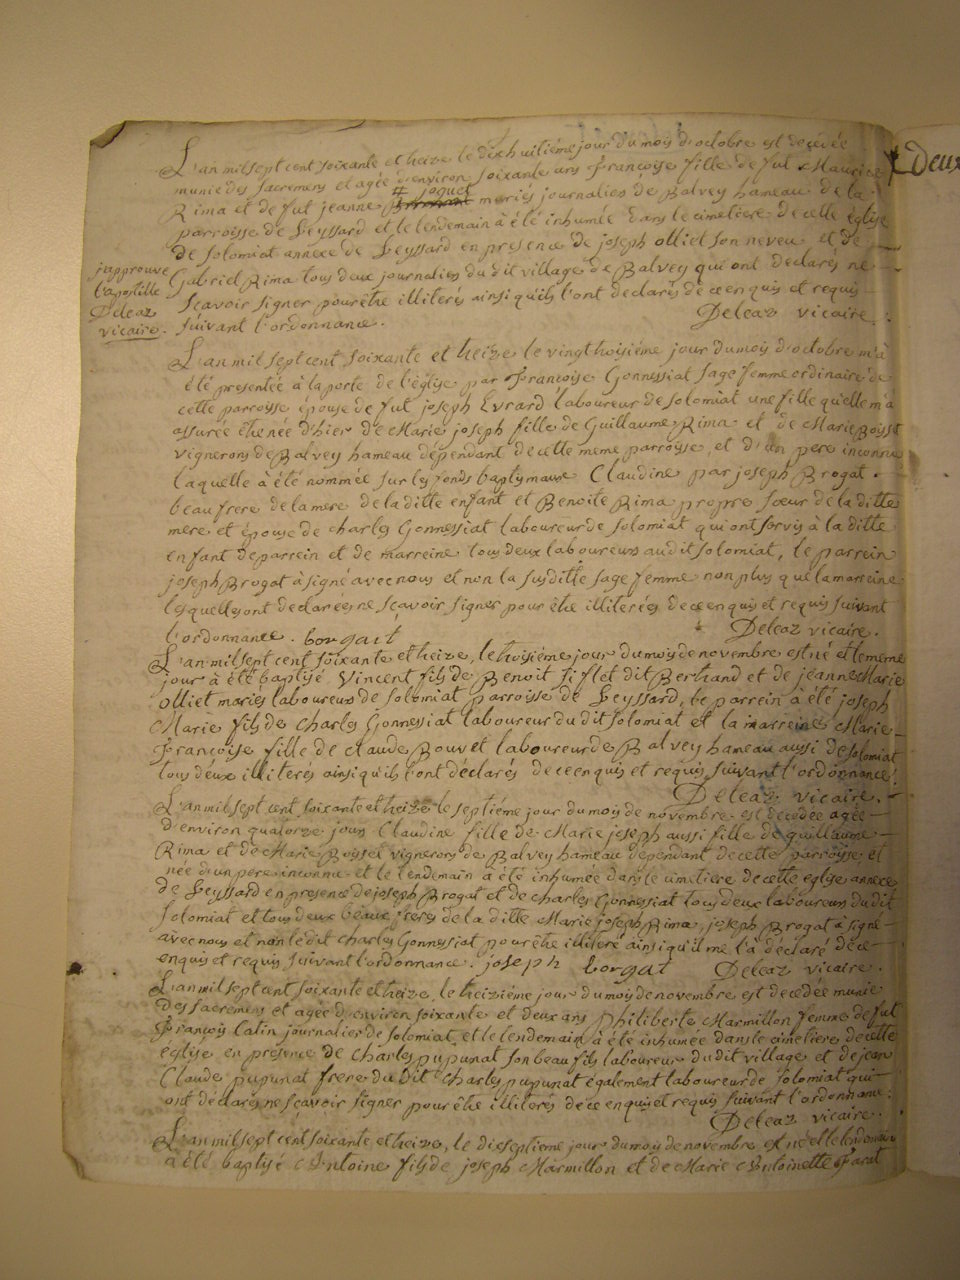 L'an mil sept cent soixante et treize le dixhuitiéme jour du mois d'octobre est decédée
munie des sacremens et agée d'environ soixante ans françoise fille de fut Maurice
Rima et de fut jeanne # joquet mariés journalien de Balvey hameau de la
parroisse de Leyssard et le lendemain à été inhumée dans le cimetiere de celle église
de solomiat annexe de Leyssard en presence de joseph olliet son neveu et de
Gabriel Rima tous deux journalien du dit village de Balvey qui ont declarés ne
sçavoir signer pour être illiterés ainsi qu'ils l'ont declarés de ce enquis et requis
suivant l'ordonnance. Deleaz vicaire.
j'approuve
l'apostille
Deleaz
vicaire.
L'an mil sept cent soixante et treize le vingt troisiéme jour du mois d'octobre m'a
été presentée à la porte de l'église par françoise Gonnessiat sage femme ordinaire de
cette parroisse épouse de fut joseph Evrard laboureur de solomiat une fille qu'elle m'a
assurée être née d'hier de Marie joseph fille de Guillaume Rima et de Marie Boysset
vignerons de Balvey hameau dépendant de cette meme parroisse, et d'un pere inconnu
laquelle à été nommée sur les fonds baptismaux Claudine par joseph Brogat
beau frere de la mere de la ditte enfant et Benoite Rima propre sœur de la ditte
mere et épouse de charles Gonnessiat laboureur de solomiat qui ont servis à la ditte
enfant de parrein et de marreine tous deux laboureurs au dit solomiat, le parrein
joseph Brogat à signé avec nous et non la susditte sage femme non plus que la marreine
lesquelles ont declarées ne sçavoir signer pour être illiterées de ce enquis et requis suivant
l'ordonnance. borgait Deleaz vicaire.
L'an mil sept cent soixante et treize, le troisiéme jour du mois de novembre est né et le meme
jour à été baptisé Vincent fils de Benoit Tiflet dit Bertrand et de jeanne Marie
olliet mariés laboureurs de solomiat parroisse de Leyssard, le parrein à été joseph
Marie fils de charles Gonnessiat laboureur du dit solomiat et la marreine Marie
françoise fille de claude Bouvet laboureur de Balvey hameau aussi de solomiat
tous deux illiterés ainsi qu'ils l'ont déclarés de ce enquis et requis suivant l'ordonnance.
Deleaz vicaire.
L'an mil sept cent soixante et treize le septiéme jour du mois de novembre est decedée agée
d'environ quatorze jours Claudine fille de Marie joseph aussi fille de guillaume
Rima et de Marie Boysset vignerons de Balvey hameau dépendant de cette parroisse et
née d'un pere inconnu et le lendemain à été inhumée dans le cimetiere de cette eglise annexe
de Leyssard en presence de joseph Brogat et de charles Gonnessiat tous deux laboureurs du dit
solomiat et tous deux beaux freres de la ditte Marie joseph Rima, joseph Brogat à signé
avec nous et non le dit charles Gonnessiat pour être illiteré ainsi qu'il me l'à déclaré de ce
enquis et requis suivant l'ordonnance. joseph borgat Deleaz vicaire.
L'an mil sept cent soixante et treize, le treiziéme jour du mois de novembre est decedée munie
des sacremens et agée d'environ soixante et deux ans philiberte Marmillon femme de fut
françois latin journalier de solomiat, et le lendemain à été inhumée dans le cimetiere de cette
église en presence de charles pupunat son beau fils laboureur du dit village et de jean
Claude pupunat frere du dit charles pupunat également laboureur de solomiat qui
ont déclarés ne sçavoir signer pour être illiterés de ce enquis et requis suivant l'ordonnance.
Deleaz vicaire.
L'an mil sept cent soixante et treize, le dixseptiéme jour du mois de novembre est né et le lendemain
à été baptisé Antoine fils de joseph Marmillon et de Marie Antoinette farat
Deux